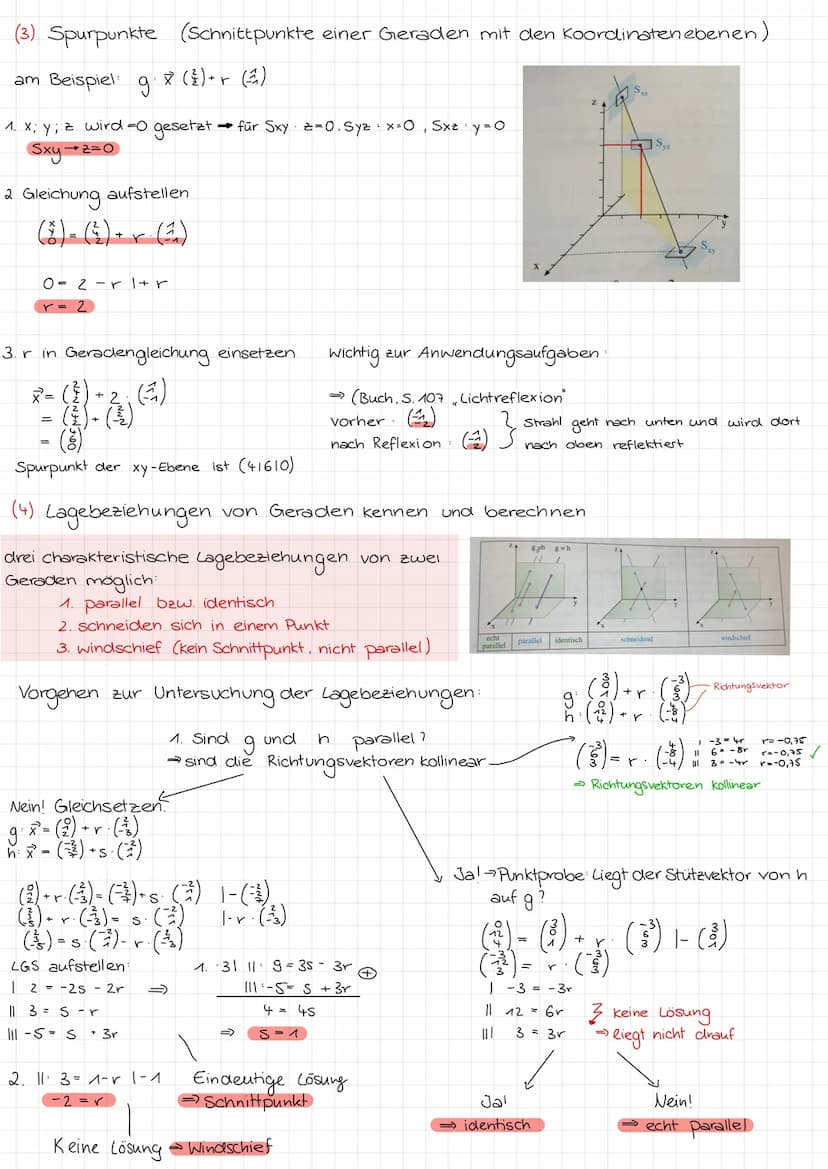 (3) Spurpunkte (Schnittpunkte einer Geraden mit den Koordinatenebenen)
am Beispiel:
1. x; y; z wird =0 gesetzt → für Sxy: z=0, Syz: x=0, Sxz: y=0
Sxy → z=0
z
Sxz
Syz
y
Sxy
x
2 Gleichung aufstellen
0 = 2 - r |+r
r = 2
3. r in Geradengleichung einsetzen
Spurpunkt der xy-Ebene ist (4|6|0)
Wichtig zur Anwendungsaufgaben:
⇒ (Buch, S. 107 „Lichtreflexion"
vorher:
nach Reflexion:
Strahl geht nach unten und wird dort
nach oben reflektiert
(4) Lagebeziehungen von Geraden kennen und berechnen
drei charakteristische Lagebeziehungen von zwei
Geraden möglich:
1. parallel bzw. identisch
2. schneiden sich in einem Punkt
3. windschief (kein Schnittpunkt, nicht parallel)
echt parallel
parallel
identisch
schneidend
windschief
Vorgehen zur Untersuchung der Lagebeziehungen:
Richtungsvektor
1. Sind g und h parallel?
→ sind die Richtungsvektoren kollinear
I -3 = 4r r = -0,75
II 6 = -8r r = -0,75 ✓
III 3 = -4r r = -0,75
⇒ Richtungsvektoren kollinear
Nein! Gleichsetzen:
LGS aufstellen:
I 2 = -2s - 2r ⇒
II 3 = s - r
III -5 = s + 3r
1. ·3| II: 9 = 3s - 3r
III: -5 = s + 3r
4 = 4s
⇒ s = 1
2. II: 3 = 1 - r |-1
-2 = r
Eindeutige Lösung
⇒ Schnittpunkt
Keine Lösung ⇒ Windschief
Ja! → Punktprobe: Liegt der Stützvektor von h
auf g?
I -3 = -3r
II 12 = 6r
III 3 = 3r
keine Lösung
⇒ liegt nicht drauf
Ja!
⇒ identisch
Nein!
⇒ echt parallel